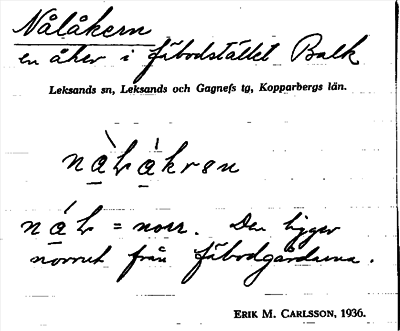 Nålåkern
en åker i fäbodstället Balk
Leksands sn, Leksands och Gagnefs tg, Kopparbergs län.
nàLàkrən
náL = norr. Den ligger
norrut från fäbodgårdarna.
ERIK M. CARLSSON, 1936.